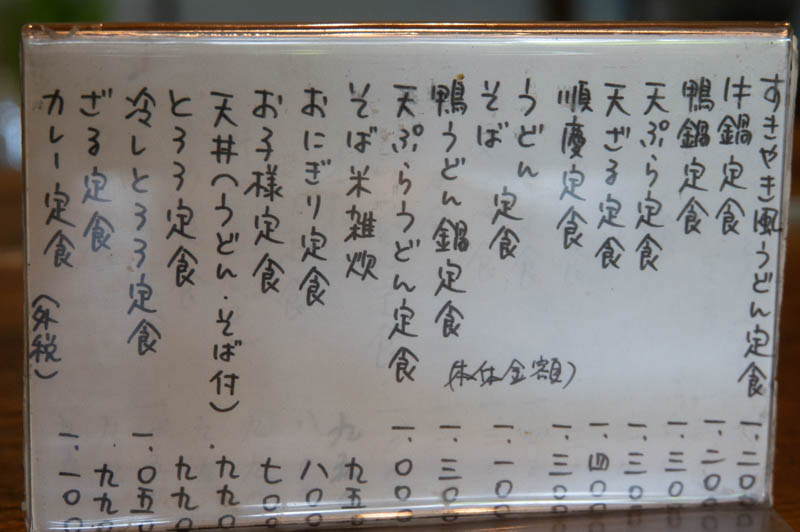 すきやき風うどん定食 一、二〇〇
牛鍋定食 一、二〇〇
鴨鍋定食 一、三〇〇
天ぷら定食 一、三〇〇
天ざる定食 一、四〇〇
順慶定食 一、三〇〇
うどん
そば 定食 一、一〇〇
鴨うどん鍋定食 一、三〇〇
天ぷらうどん定食 一、〇〇〇
そば米雑炊 九五
おにぎり定食 八〇〇
お子様定食 七〇〇
天丼(うどん・そば付) 九九〇
とろろ定食 九九〇
冷しとろろ定食 一、〇五
ざる定食 九九
カレー定食 一、一〇〇
(本体金額)
(外税)